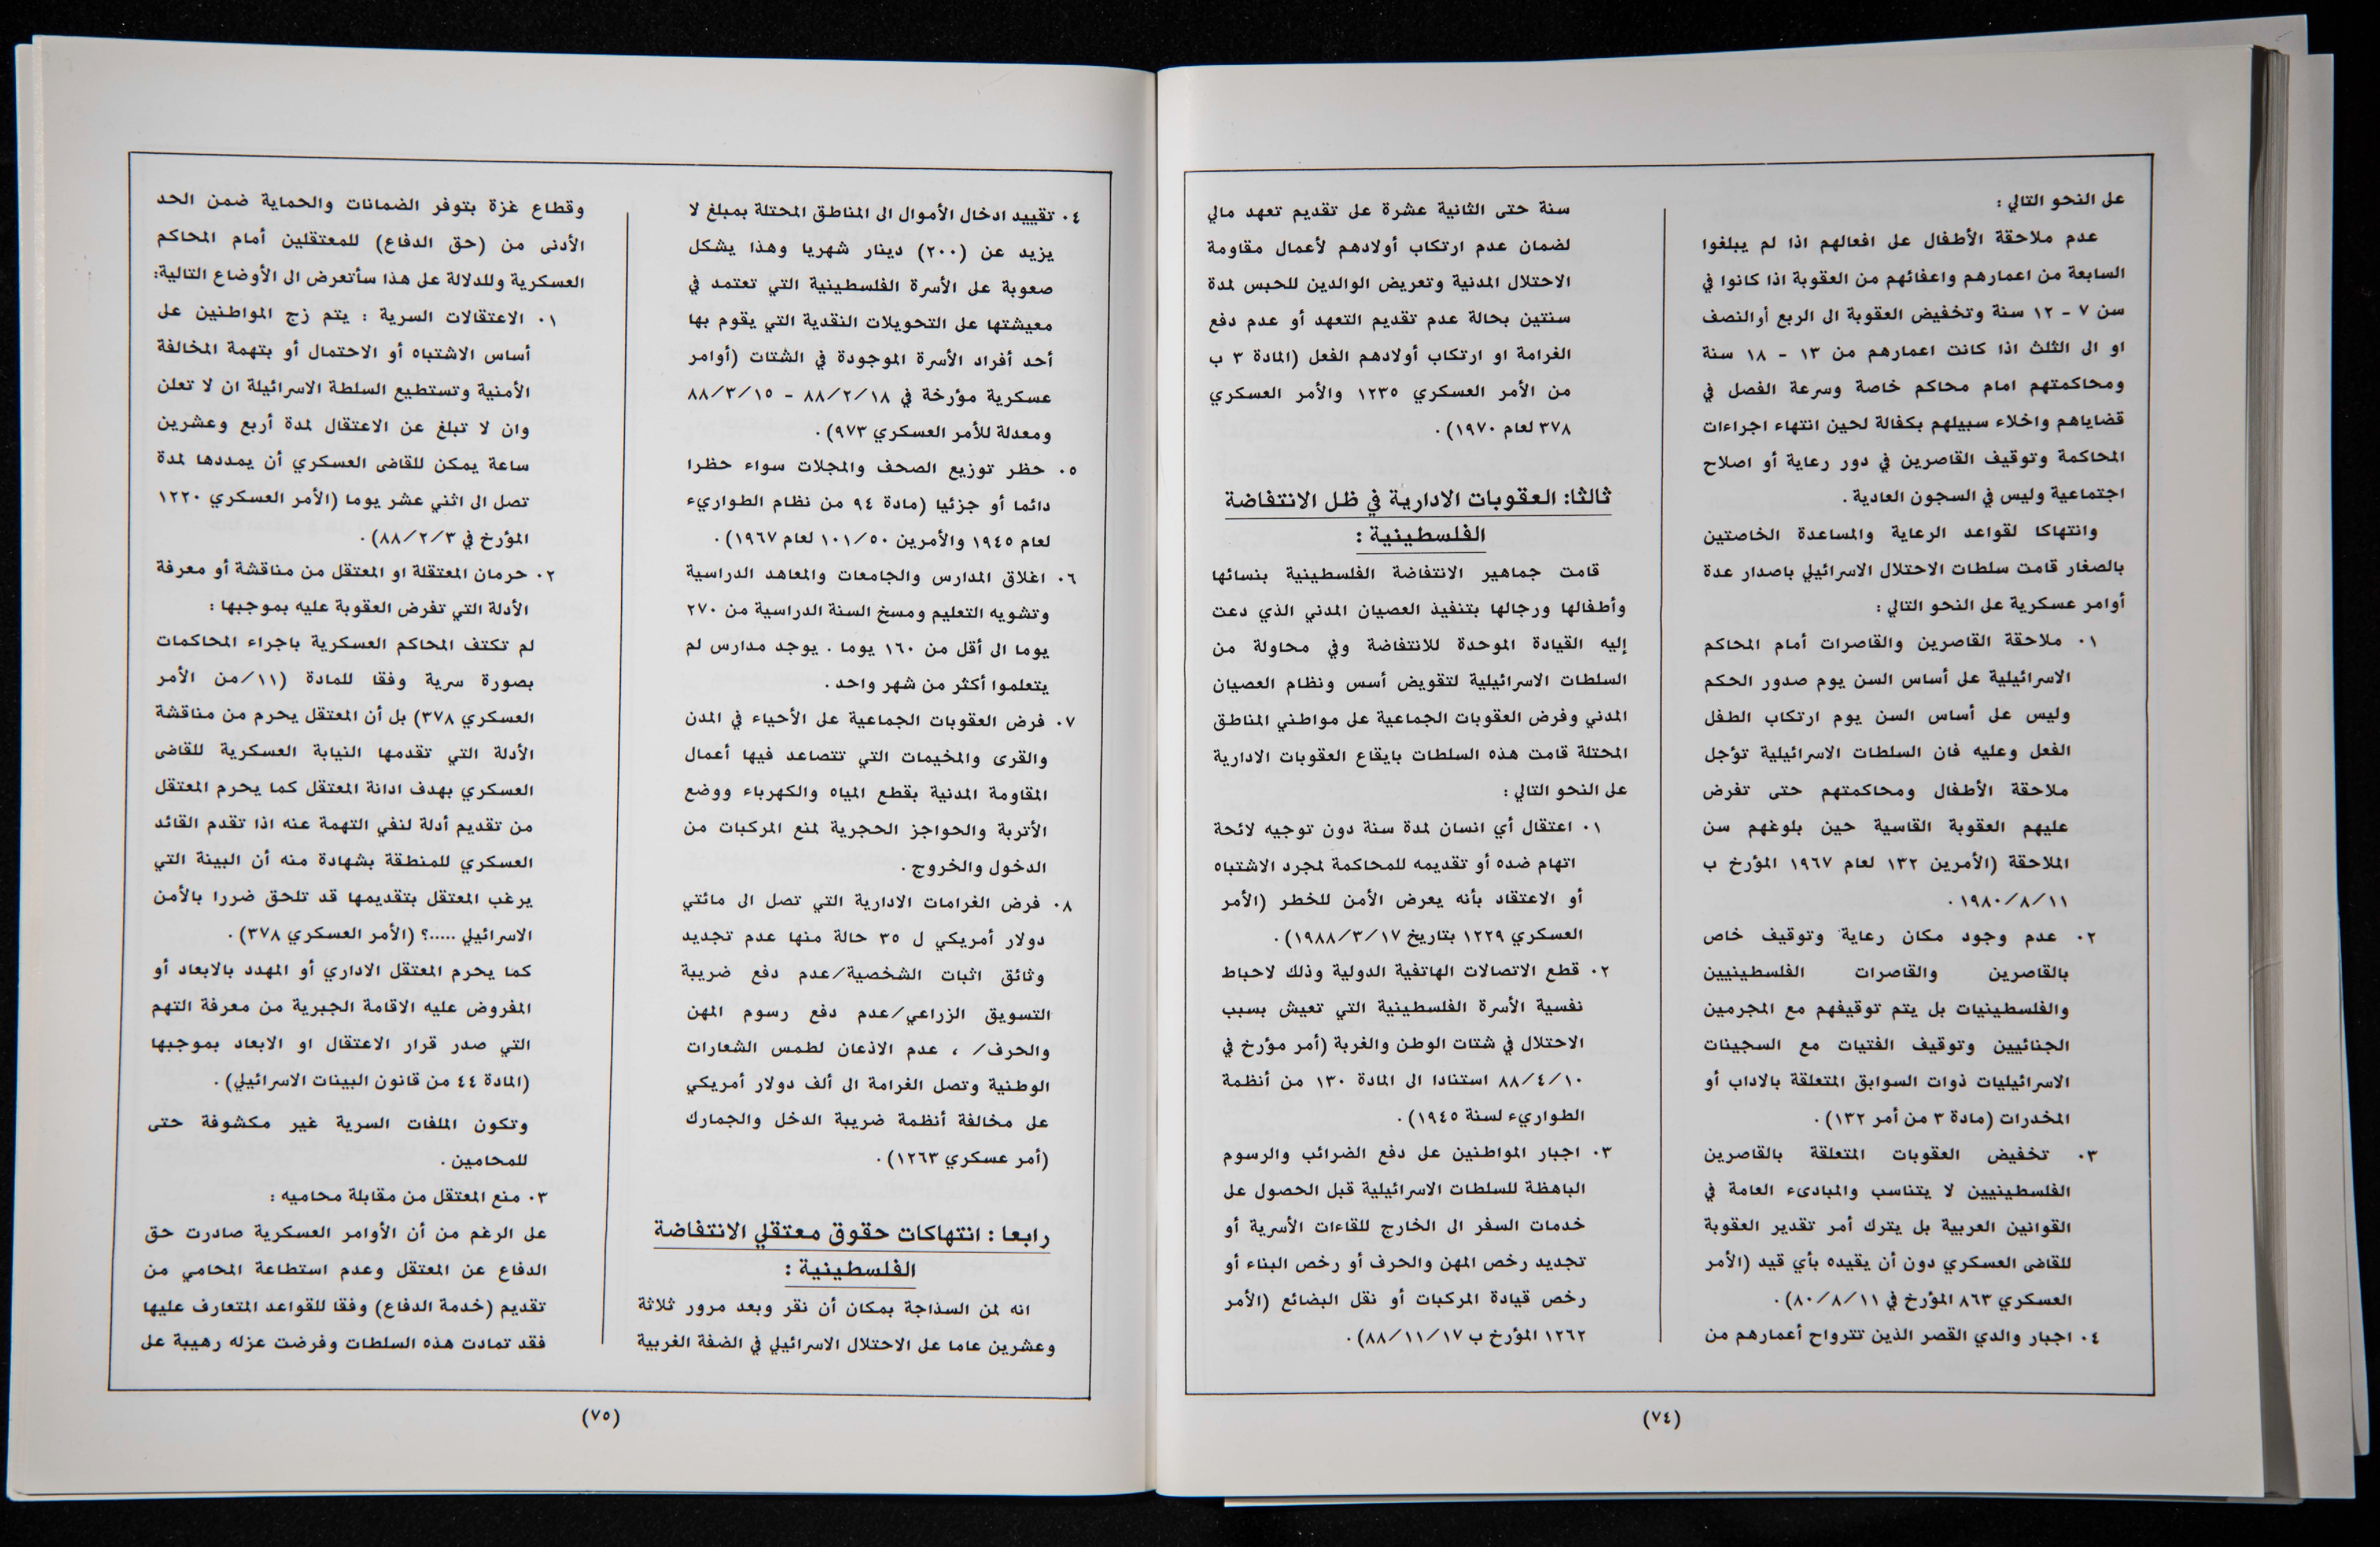 على النحو التالي :
عدم ملاحقة الأطفال على افعالهم اذا لم يبلغوا
السابعة من اعمارهم واعفائهم من العقوبة اذا كانوا في
سن ٧ - ١٢ سنة وتخفيض العقوبة الى الربع أو النصف
او الى الثلث اذا كانت اعمارهم من ١٣ - ١٨ سنة
ومحاكمتهم امام محاكم خاصة وسرعة الفصل في
قضاياهم واخلاء سبيلهم بكفالة لحين انتهاء اجراءات
المحاكمة وتوقيف القاصرين في دور رعاية أو اصلاح
اجتماعية وليس في السجون العادية .
وانتهاكا لقواعد الرعاية والمساعدة الخاصتين
بالصغار قامت سلطات الاحتلال الاسرائيلي باصدار عدة
أوامر عسكرية على النحو التالي :
٠١ ملاحقة القاصرين والقاصرات أمام المحاكم
الاسرائيلية على أساس السن يوم صدور الحكم
وليس على أساس السن يوم ارتكاب الطفل
الفعل وعليه فان السلطات الاسرائيلية تؤجل
ملاحقة الأطفال ومحاكمتهم حتى تفرض
عليهم العقوبة القاسية حين بلوغهم سن
الملاحقة (الأمرين ١٣٢ لعام ١٩٦٧ المؤرخ ب
١٩٨٠/٨/١١ .
٠٢ عدم وجود مكان رعاية وتوقيف خاص
بالقاصرين والقاصرات الفلسطينيين
والفلسطينيات بل يتم توقيفهم مع المجرمين
الجنائيين وتوقيف الفتيات مع السجينات
الاسرائيليات ذوات السوابق المتعلقة بالاداب أو
المخدرات (مادة ٣ من أمر ١٣٢) .
٠٣ تخفيض العقوبات المتعلقة بالقاصرين
الفلسطينيين لا يتناسب والمبادىء العامة في
القوانين العربية بل يترك أمر تقدير العقوبة
للقاضى العسكري دون أن يقيده بأي قيد (الأمر
العسكري ٨٦٣ المؤرخ في ٨٠/٨/١١) .
٠٤ اجبار والدي القصر الذين تترواح أعمارهم من
سنة حتى الثانية عشرة على تقديم تعهد مالي
لضمان عدم ارتكاب أولادهم لأعمال مقاومة
الاحتلال المدنية وتعريض الوالدين للحبس لمدة
سنتين بحالة عدم تقديم التعهد أو عدم دفع
الغرامة او ارتكاب أولادهم الفعل (المادة ٣ ب
من الأمر العسكري ١٢٣٥ والأمر العسكري
٣٧٨ لعام ١٩٧٠) .
ثالثا: العقوبات الادارية في ظل الانتفاضة
الفلسطينية :
قامت جماهير الانتفاضة الفلسطينية بنسائها
وأطفالها ورجالها بتنفيذ العصيان المدني الذي دعت
إليه القيادة الموحدة للانتفاضة وفي محاولة من
السلطات الاسرائيلية لتقويض أسس ونظام العصيان
المدني وفرض العقوبات الجماعية على مواطني المناطق
المحتلة قامت هذه السلطات بايقاع العقوبات الادارية
على النحو التالي :
٠١ اعتقال أي انسان لمدة سنة دون توجيه لائحة
اتهام ضده أو تقديمه للمحاكمة لمجرد الاشتباه
أو الاعتقاد بأنه يعرض الأمن للخطر (الأمر
العسكري ١٢٢٩ بتاريخ ١٩٨٨/٣/١٧) .
٠٢ قطع الاتصالات الهاتفية الدولية وذلك لاحباط
نفسية الأسرة الفلسطينية التي تعيش بسبب
الاحتلال في شتات الوطن والغربة (أمر مؤرخ في
٨٨/٤/١٠ استنادا الى المادة ١٣٠ من أنظمة
الطواريء لسنة ١٩٤٥) .
٠٣ اجبار المواطنين على دفع الضرائب والرسوم
الباهظة للسلطات الاسرائيلية قبل الحصول على
خدمات السفر الى الخارج للقاءات الأسرية أو
تجديد رخص المهن والحرف أو رخص البناء أو
رخص قيادة المركبات أو نقل البضائع (الأمر
١٢٦٢ المؤرخ ب ٨٨/١١/١٧) .
(٧٤)
٠٤ تقييد ادخال الأموال الى المناطق المحتلة بمبلغ لا
يزيد عن (٢٠٠) دينار شهريا وهذا يشكل
صعوبة على الأسرة الفلسطينية التي تعتمد في
معيشتها على التحويلات النقدية التي يقوم بها
أحد أفراد الأسرة الموجودة في الشتات (أوامر
عسكرية مؤرخة في ٨٨/٢/١٨ - ٨٨/٣/١٥
ومعدلة للأمر العسكري ٩٧٣) .
٠٥ حظر توزيع الصحف والمجلات سواء حظرا
دائما أو جزئيا (مادة ٩٤ من نظام الطواريء
لعام ١٩٤٥ والأمرين ١٠١/٥٠ لعام ١٩٦٧) .
٠٦ اغلاق المدارس والجامعات والمعاهد الدراسية
وتشويه التعليم ومسخ السنة الدراسية من ٢٧٠
يوما الى أقل من ١٦٠ يوما . يوجد مدارس لم
يتعلموا أكثر من شهر واحد .
٠٧ فرض العقوبات الجماعية على الأحياء في المدن
والقرى والمخيمات التي تتصاعد فيها أعمال
المقاومة المدنية بقطع المياه والكهرباء ووضع
الأتربة والحواجز الحجرية لمنع المركبات من
الدخول والخروج .
٠٨ فرض الغرامات الادارية التي تصل الى مائتي
دولار أمريكي ل ٣٥ حالة منها عدم تجديد
وثائق اثبات الشخصية/عدم دفع ضريبة
التسويق الزراعي/عدم دفع رسوم المهن
والحرف/ ، عدم الاذعان لطمس الشعارات
الوطنية وتصل الغرامة الى ألف دولار أمريكي
على مخالفة أنظمة ضريبة الدخل والجمارك
(أمر عسكري ١٢٦٣) .
رابعا : انتهاكات حقوق معتقلي الانتفاضة
الفلسطينية :
انه لمن السذاجة بمكان أن نقر وبعد مرور ثلاثة
وعشرين عاما على الاحتلال الاسرائيلي في الضفة الغربية
وقطاع غزة بتوفر الضمانات والحماية ضمن الحد
الأدنى من (حق الدفاع) للمعتقلين أمام المحاكم
العسكرية وللدلالة على هذا سأتعرض الى الأوضاع التالية:
٠١ الاعتقالات السرية : يتم زج المواطنين على
أساس الاشتباه أو الاحتمال أو بتهمة المخالفة
الأمنية وتستطيع السلطة الاسرائيلة ان لا تعلن
وان لا تبلغ عن الاعتقال لمدة أربع وعشرين
ساعة يمكن للقاضى العسكري أن يمددها لمدة
تصل الى اثني عشر يوما (الأمر العسكري ١٢٢٠
المؤرخ في ٨٨/٢/٣) .
٠٢ حرمان المعتقلة او المعتقل من مناقشة أو معرفة
الأدلة التي تفرض العقوبة عليه بموجبها :
لم تكتف المحاكم العسكرية باجراء المحاكمات
بصورة سرية وفقا للمادة (١١/من الأمر
العسكري ٣٧٨) بل أن المعتقل يحرم من مناقشة
الأدلة التي تقدمها النيابة العسكرية للقاضى
العسكري بهدف ادانة المعتقل كما يحرم المعتقل
من تقديم أدلة لنفي التهمة عنه اذا تقدم القائد
العسكري للمنطقة بشهادة منه أن البينة التي
يرغب المعتقل بتقديمها قد تلحق ضررا بالأمن
الاسرائيلي .....؟ (الأمر العسكري ٣٧٨) .
كما يحرم المعتقل الاداري أو المهدد بالابعاد أو
المفروض عليه الاقامة الجبرية من معرفة التهم
التي صدر قرار الاعتقال او الابعاد بموجبها
(المادة ٤٤ من قانون البينات الاسرائيلي) .
وتكون الملفات السرية غير مكشوفة حتى
للمحامين .
٠٣ منع المعتقل من مقابلة محاميه :
على الرغم من أن الأوامر العسكرية صادرت حق
الدفاع عن المعتقل وعدم استطاعة المحامي من
تقديم (خدمة الدفاع) وفقا للقواعد المتعارف عليها
فقد تمادت هذه السلطات وفرضت عزله رهيبة على
(٧٥)